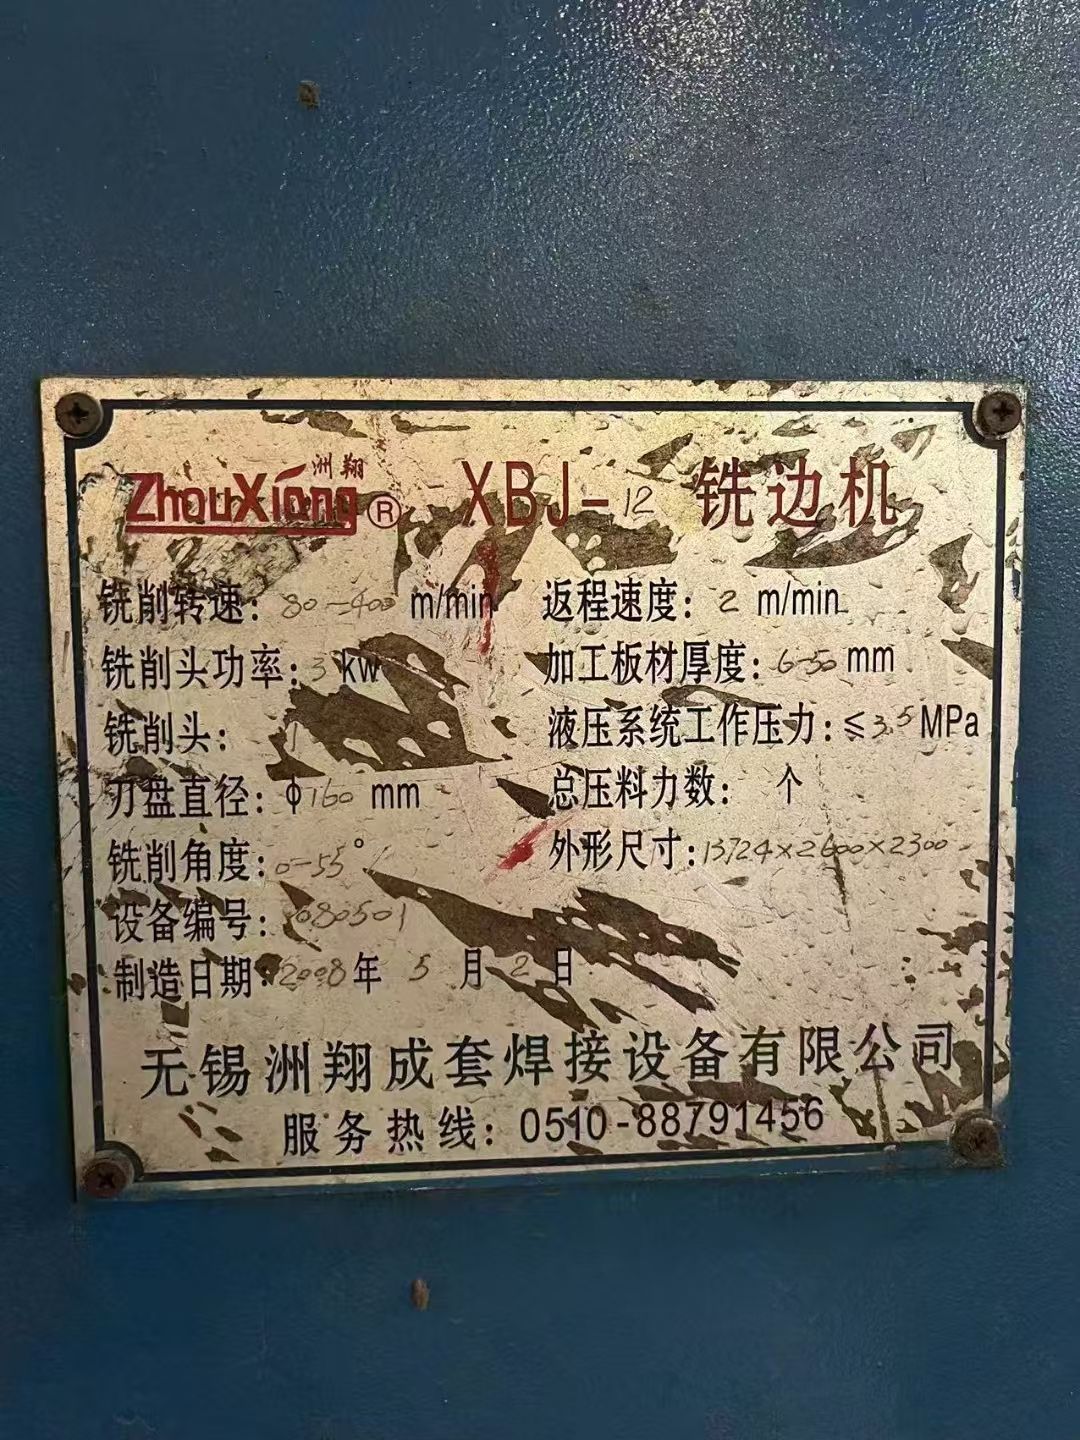 洲翔
ZhouXiang® XBJ-12 铣边机
铣削转速: 80-400 m/min 返程速度: 2 m/min
铣削头功率: 3 kw 加工板材厚度: 6-50 mm
铣削头: 1 液压系统工作压力: ≤3.5 MPa
刃盘直径: φ160 mm 总压料力数: 个
铣削角度: 0-55° 外形尺寸: 13724×2600×2300
设备编号: 080501
制造日期: 2008年 5月 2日
无锡洲翔成套焊接设备有限公司
服务热线: 0510-88791456